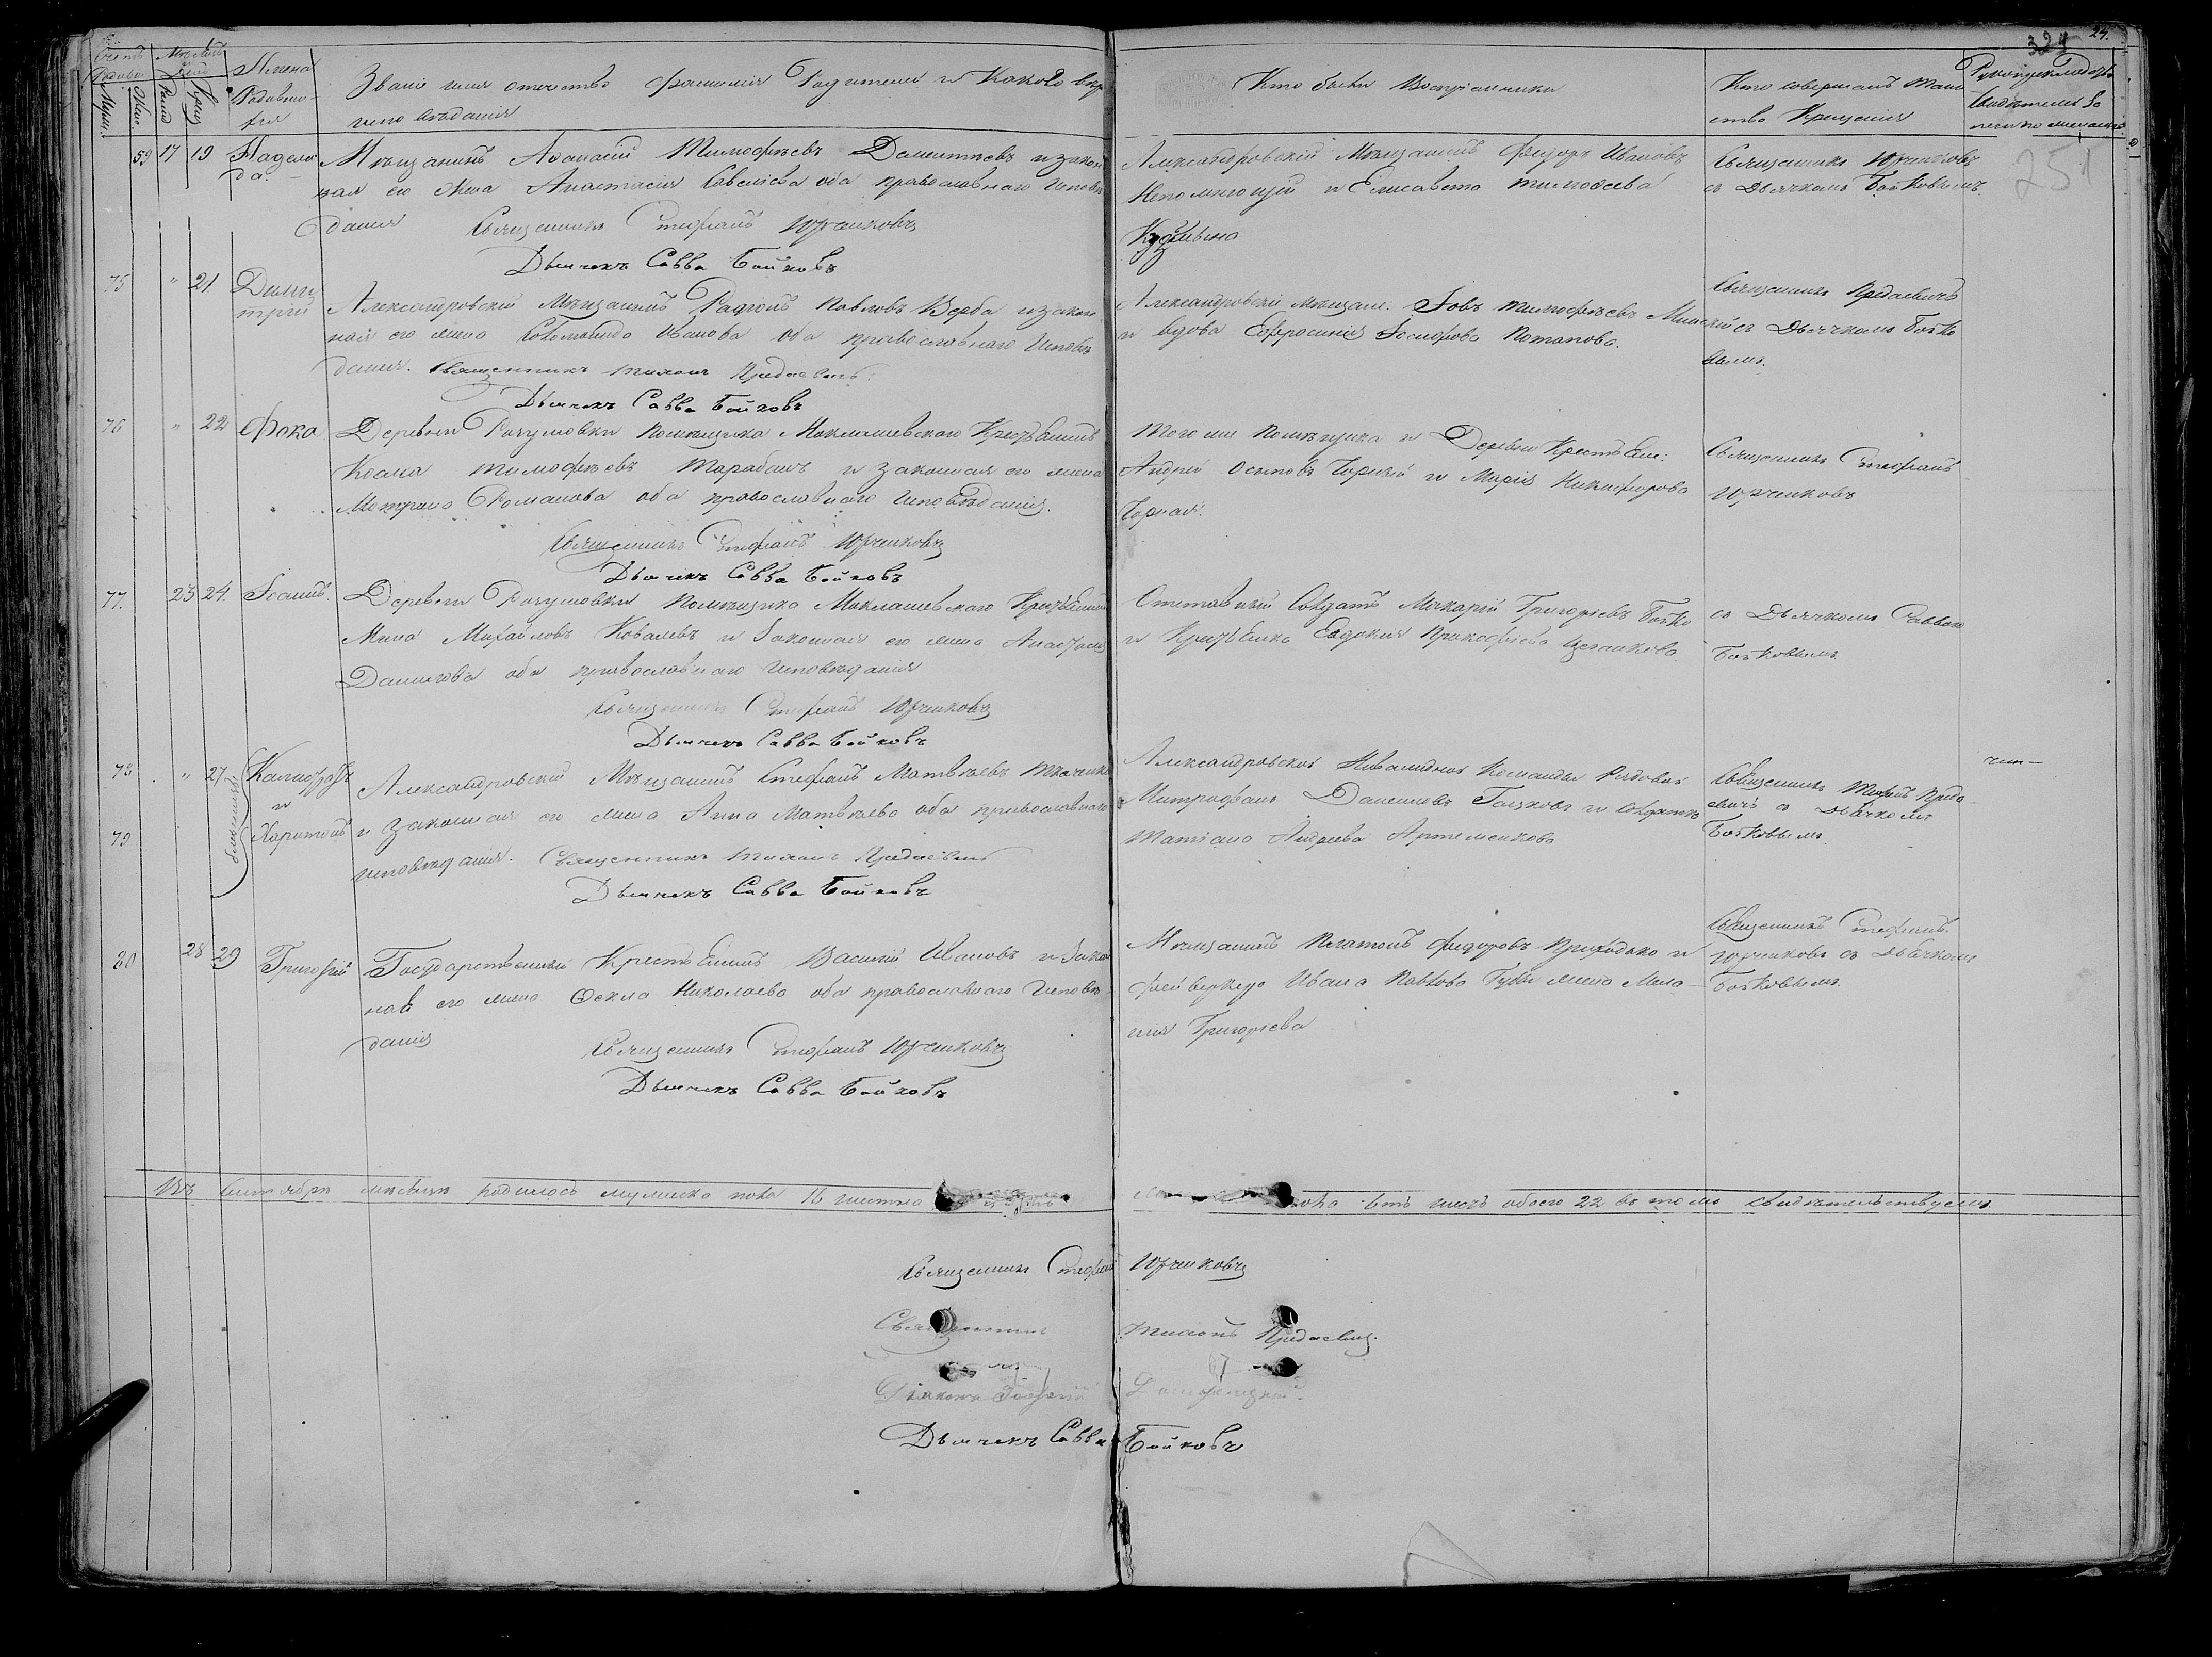 324 24.
251
Счетъ Родивш. Мѣсяцъ и день Имена Родивши-
хся
Муж. Жен. Рожд. Крещ.
Званіе имя отчество фамилія Родителей и Какого вѣро
исповѣданія
Кто были Воспріемники
Кто совершалъ Таин
ство Крещенія
59 17 19 Надеж
да.
Мѣщанинъ Аѳанасій Тимофѣевъ Дементьевъ и закон
ная его жена Анастасія Савеліева оба православнаго Исповѣ
данія Священникъ Стефанъ Юрченковъ
Дьячекъ Савва Бойковъ
Александровскій Мѣщанинъ Федоръ Ивановъ
Непомнющій и Елисавета Тимофеева
Кудрина
Священникъ Юрченковъ
съ Дьячкомъ Бойковымъ.
75 " 21 Дими
трій
Александровскій Мѣщанинъ Родіонъ Павловъ Верба и закон
ная его жена Соломонида Иванова оба православнаго Исповѣ
данія. Священникъ Тихонъ Предаевичъ.
Дьячекъ Савва Бойковъ
Александровскій Мѣщан. Іовъ Тимофѣевъ
и вдова Евфросинія Іосифова Потапова.
Священникъ Предаевичъ
съ Дьячкомъ Бойко
вымъ.
76 " 22 Фока
Деревни Разумовки помѣщика Миклашевскаго Крестьянинъ
Косма Тимофѣевъ Тарабанъ и законная его жена
Матрона Романова оба православнаго Исповѣданія.
Священникъ Стефанъ Юрченковъ
Дьячекъ Савва Бойковъ
Того же помѣщика и Деревни Крестьян:
Андрей Осиповъ Чорный и Марія Никифорова
Чорная.
Священникъ Стефанъ
Юрченковъ
77. 23 24. Іоаннъ.
Деревни Разумовки помѣщика Миклашевскаго Крестьянинъ
Мина Михайловъ Ковалевъ и Законная его жена Анастасія
Данилова оба православнаго Исповѣданія
Священникъ Стефанъ Юрченковъ
Дьячекъ Савва Бойковъ
Отставный Солдатъ Макарій Григорьевъ Бойко
и Крестьянка Евдокія Прокофіева Цеганкова
съ Дьячкомъ Саввою
Бойковымъ.
78 " 27 Калистратъ
и
79 Харитонъ
близнецы
Александровскій Мѣщанинъ Стефанъ Матвѣевъ Ткаченко
и законная его жена Анна Матвѣева оба православнаго
исповѣданія. Священникъ Тихонъ Предаевичъ
Дьячекъ Савва Бойковъ
Александровской Инвалидной Команды Рядовой
Митрофанъ Даниловъ и солдатка
Татіана Андреева Артеменкова
Священникъ Тихонъ Преда
евичъ съ Дьячкомъ
Бойковымъ.
80 28 29 Григорій
Государственный Крестьянинъ Василій Ивановъ и Закон
ная его жена Ѳекла Николаева оба православнаго Исповѣ
данія
Священникъ Стефанъ Юрченковъ
Дьячекъ Савва Бойковъ
Мѣщанинъ Платонъ Федоровъ Приходько и
фейверкера Ивана Павлова Губы жена Мела
нія Григорьева
Священникъ Стефанъ
Юрченковъ съ Дьячкомъ
Бойковымъ.
Въ Сентябрѣ мѣсяцѣ родилось мужеска пола 16 пола 6ть всего обоего 22 въ томъ свидѣтельствуемъ
Священникъ Стефанъ Юрченковъ
Священникъ Тихонъ Предаевичъ.
Діаконъ
Дьячекъ Савва Бойковъ